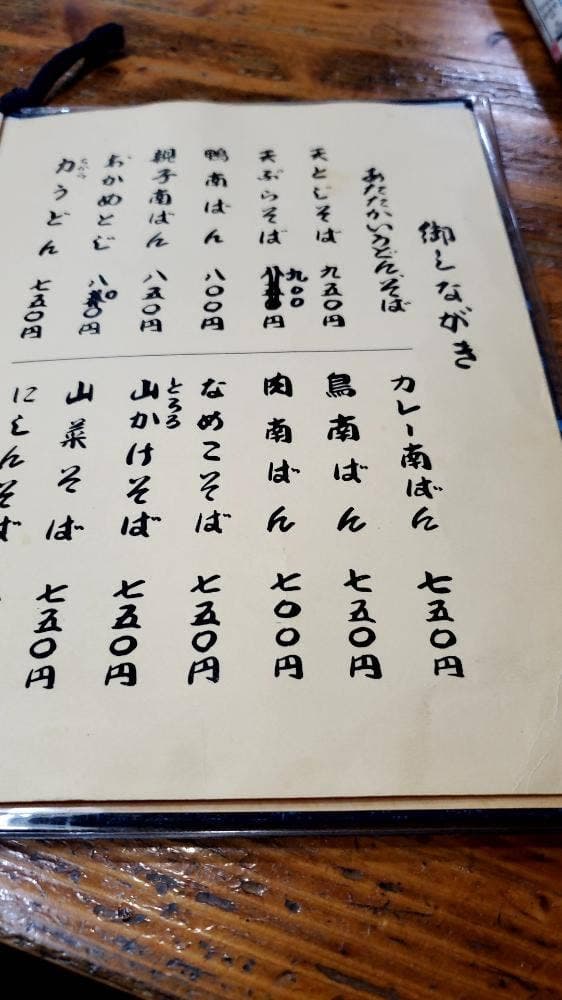 御しながき
あたたかいうどん、そば
天とじそば 九五〇円
天ぷらそば 九〇〇円
鴨南ばん 八〇〇円
親子南ばん 八五〇円
おかめとじ 八〇〇円
力うどん 七五〇円
ちから
カレー南ばん 七五〇円
鳥南ばん 七五〇円
肉南ばん 七〇〇円
なめこそば 七五〇円
とろろ
山かけそば 七五〇円
山菜そば 七五〇円
にしんそば